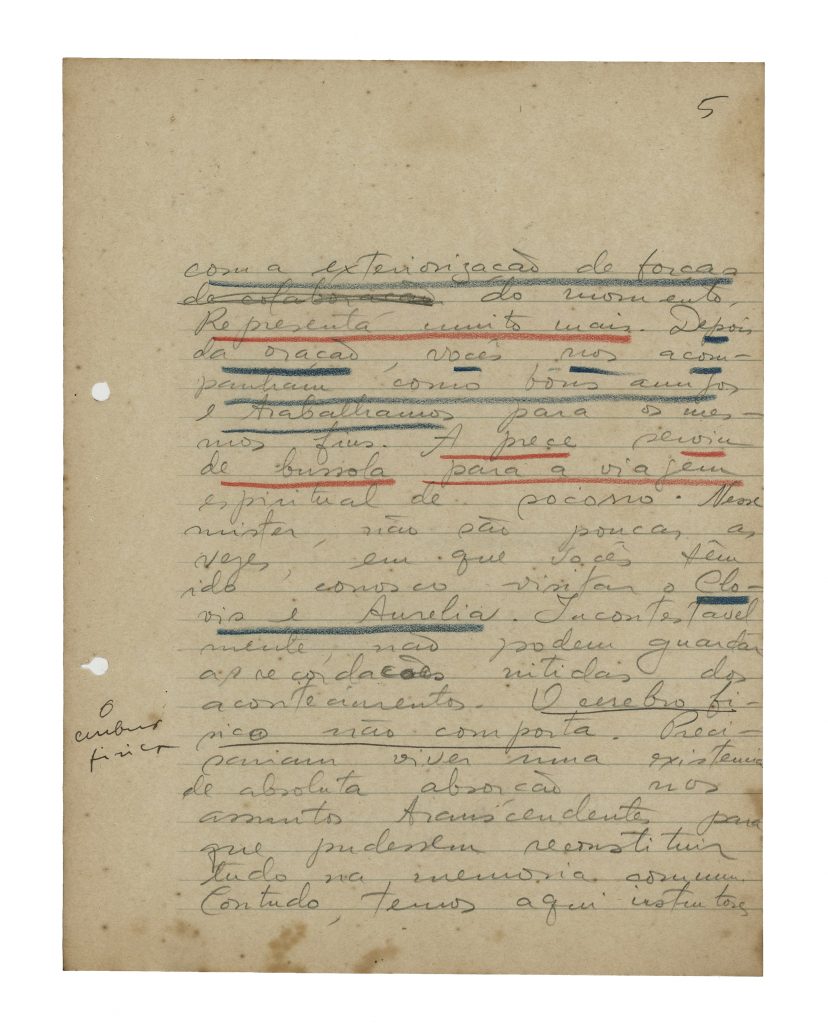 5
com a exteriorização de forças
de colaboração do momento.
Representa muito mais. Depois
da oração, vocês nos acom-
panham como bons amigos
e trabalhamos para os mes-
mos fins. A prece serviu
de bussola para a viagem
espiritual de socorro. Nesse
mister, não são poucas as
vezes, em que vocês têm
ido conosco visitar o Clo-
vis e Aurelia. Incontestavel
mente, não podem guardar
as recordações nitidas dos
acontecimentos. O cerebro fi-
sico não comporta. Preci-
O
cerebro
fisico
sariam viver uma existencia
de absoluta absorcão nos
assuntos transcendentes para
que pudessem reconstituir
tudo na memoria commum.
Contudo, temos aqui instrutores